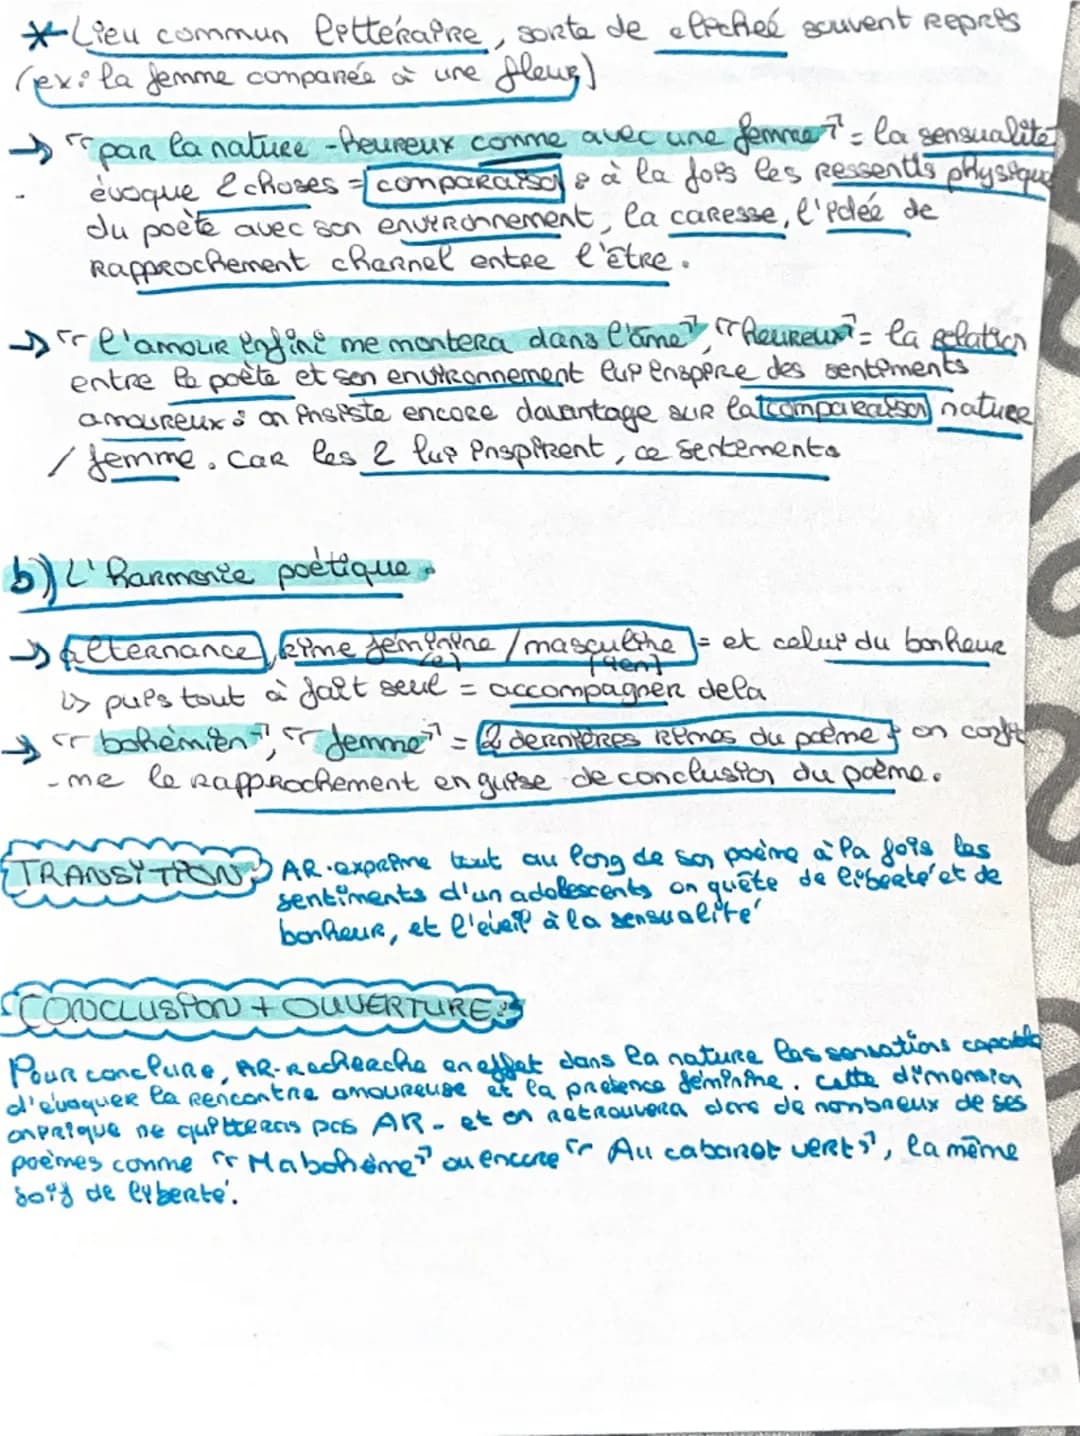 * Lieu commun littéraire, sorte de clicheé souvent repris
(ex: la femme comparée à une fleur)
→ "par la nature - heureux comme avec une femme" = la sensualité
évoque 2 choses = comparaison : à la fois les ressentis physique
du poète avec son environnement, la caresse, l'idée de
rapprochement charnel entre l'être.
→ "l'amour infini me montera dans l'âme", "heureux" = la relation
entre le poète et son environnement lui inspire des sentiments
amoureux : on insiste encore davantage sur la comparaison nature
/ femme. car les 2 lui inspirent, ce sentements
b) L'harmonie poétique.
→ alternance, rime féminine / masculine = et celui du bonheur
[e] [ien]
↳ puis tout à fait seul = accompagner dela
→ "bohémien", "femme" = 2 dernières rimes du poème : on confi
-me le rapprochement en guise de conclusion du poème.
TRANSITION : AR.exprime tout au long de son poème à la fois les
sentiments d'un adolescents en quête de liberté et de
bonheur, et l'éveil à la sensualité
CONCLUSION + OUVERTURE:
Pour conclure, AR-recherche en effet dans la nature les sensations capable
d'évoquer la rencontre amoureuse et la présence féminine. cette dimension
onirique ne quitteras pas AR- et on retrouvera dans de nombreux de ses
poèmes comme "Ma bohème" ou encore "Au cabaret vert", la même
soif de liberté.